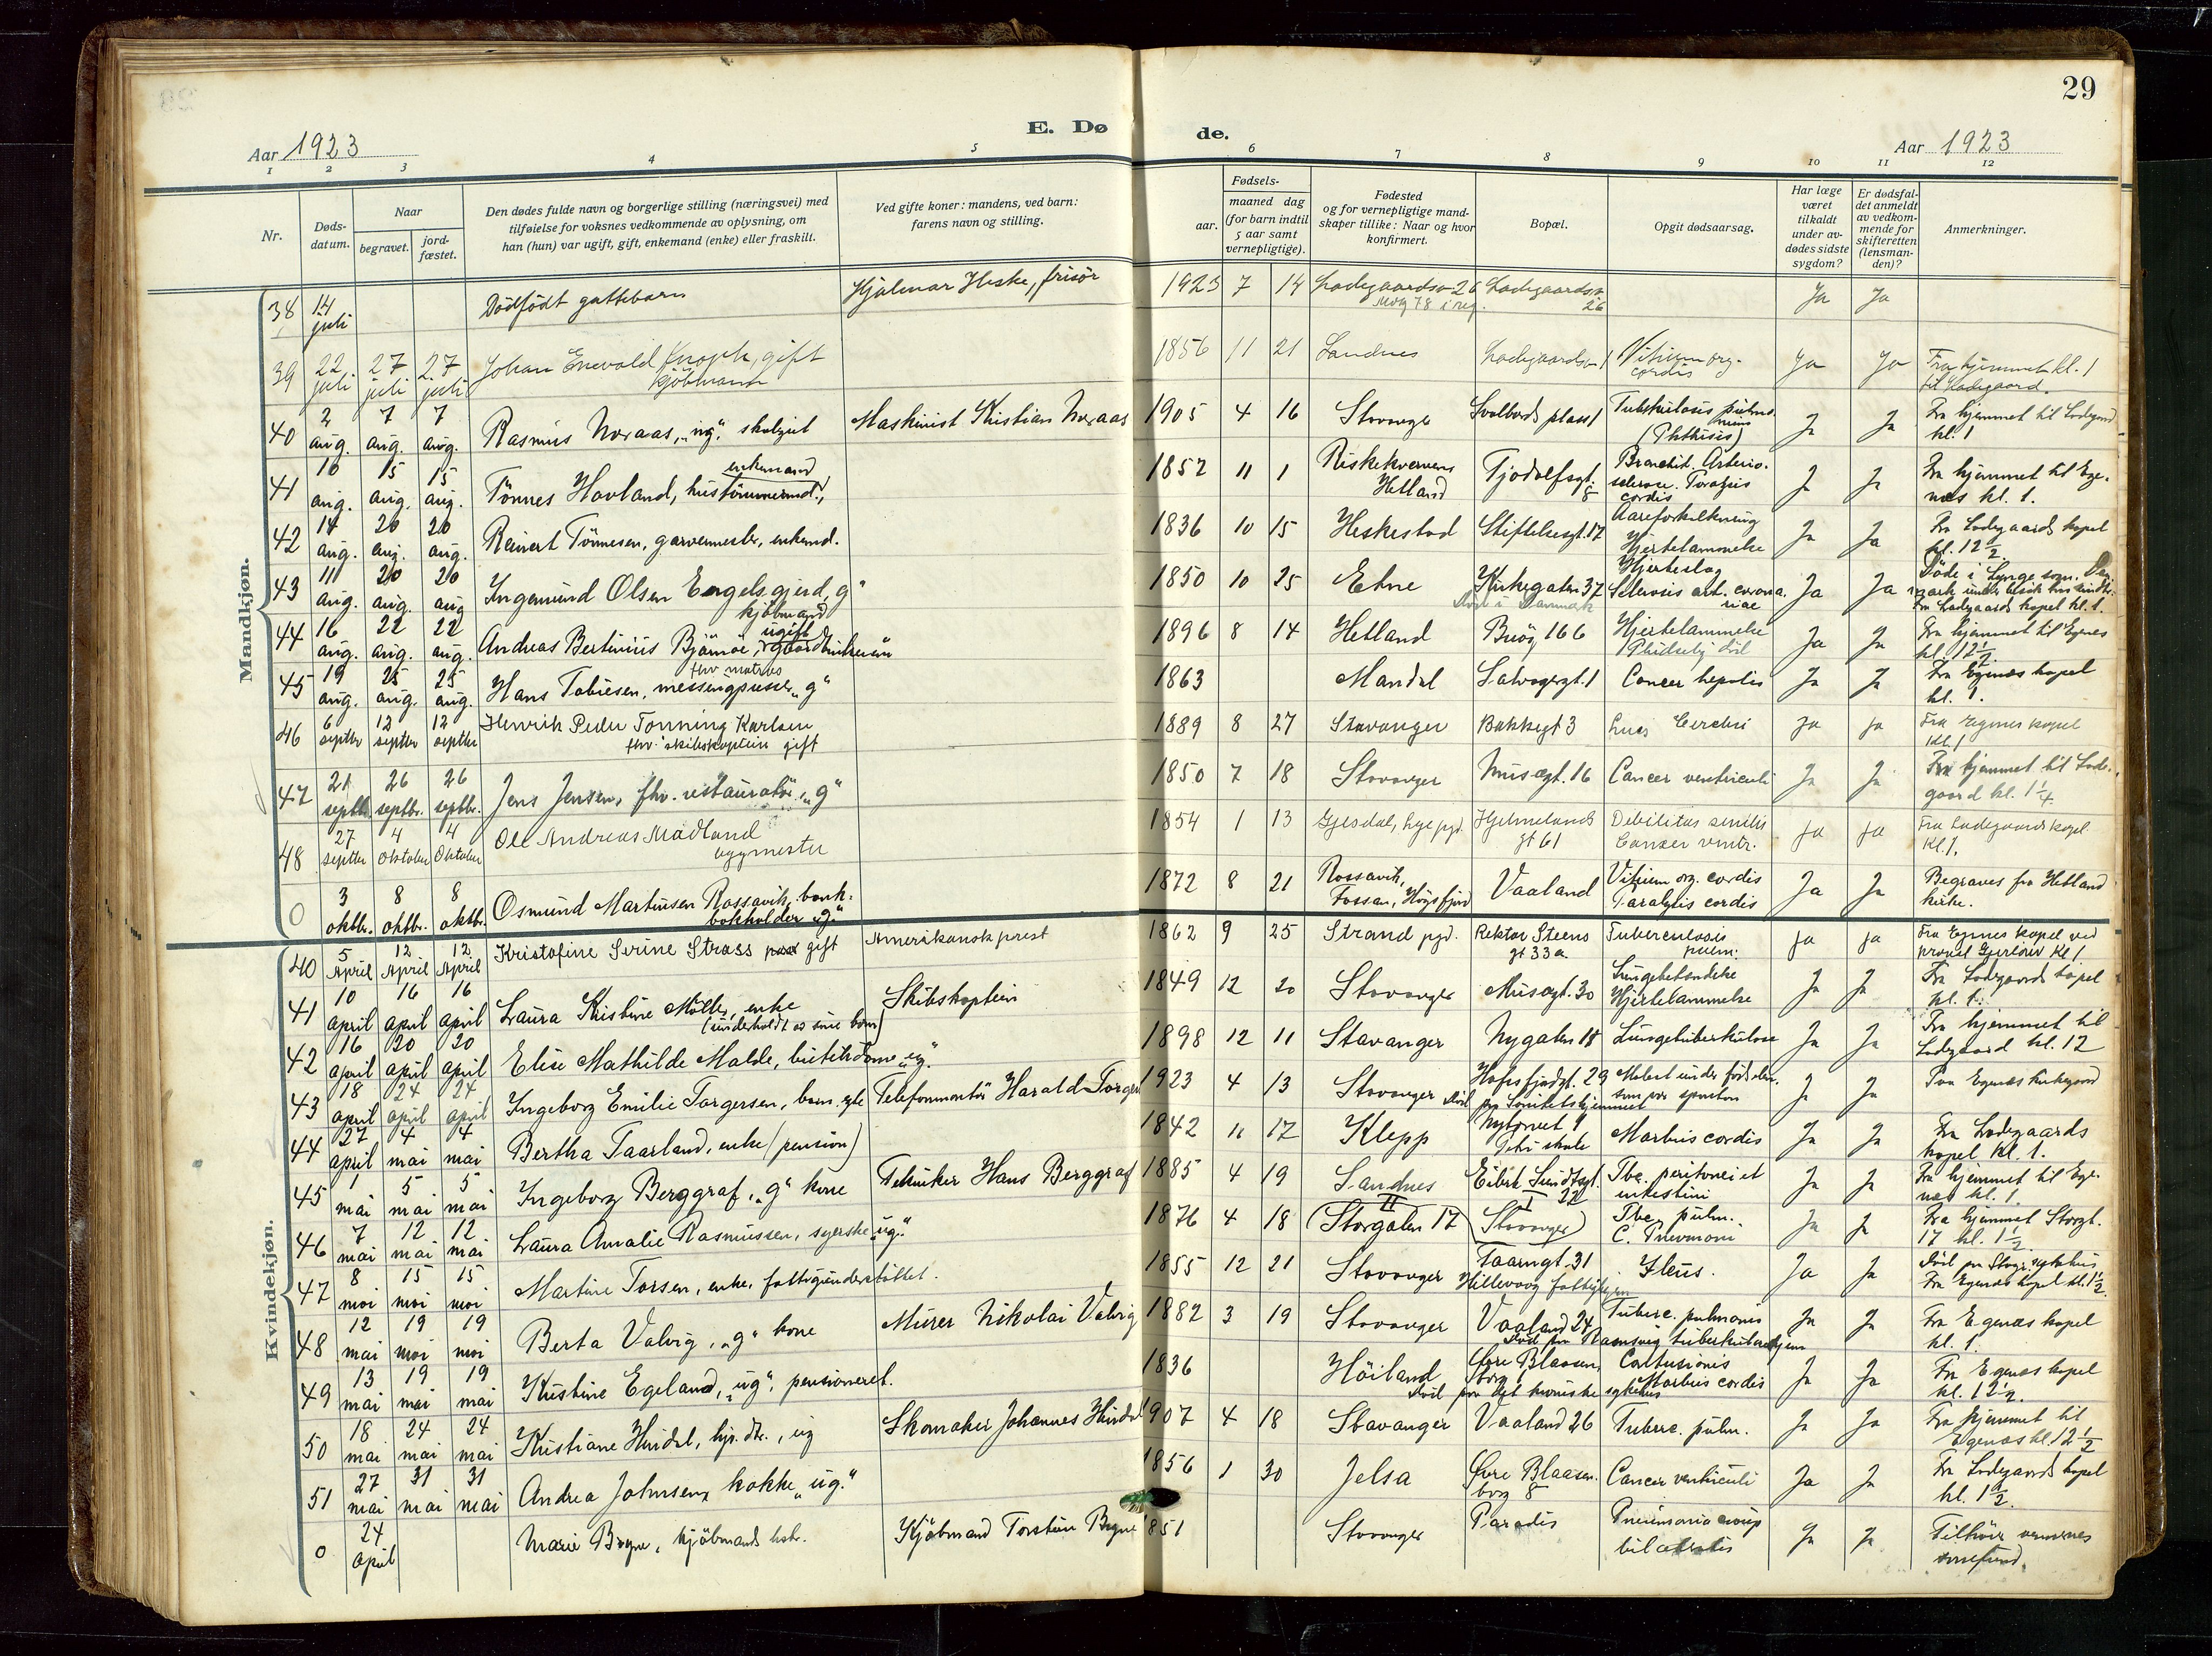 29
E. Døde.
Aar 1923
Aar 1923
1 2 3 4 5 6 7 8 9 10 11 12
Nr.
Døds-datum.
Naar
begravet.
jord-fæstet.
Den dødes fulde navn og borgerlige stilling (næringsvei) med
tilføielse for voksnes vedkommende av oplysning, om
han (hun) var ugift, gift, enkemand (enke) eller fraskilt.
Ved gifte koner: mandens, ved barn:
farens navn og stilling.
Fødsels-
aar.
maaned dag
(for barn indtil
5 aar samt
vernepligtige).
Fødested
og for vernepligtige mand-
skaper tillike: Naar og hvor
konfirmert.
Bopæl.
Opgit dødsaarsag.
Har læge
været
tilkaldt
under av-
dødes sidste
sygdom?
Er dødsfal-
det anmeldt
av vedkom-
mende for
skifteretten
(lensman-
den)?
Anmerkninger.
Mandkjøn.
38 14 juli Dödfödt guttebarn Hjalmar Heske, frisör 1923 7 14 Ladegaardsv 26 Ladegaardsv 26 Ja Ja
39 22 juli 27 juli 27 juli Johan Enevold Knoph, gift kjöbmann 1856 11 21 Sandnes Ladegaardsv 1 Vitium org. cordis Ja Ja Fra hjemmet kl. 1 til Ladegaard.
40 2 aug. 7 aug. 7 aug. Rasmus Noraas, "ug", skolegut Maskinist Kristian Noraas 1905 4 16 Stavanger Svalbards plass 1 Tuberkulosis pulmonum (Phthisis) Ja Ja Fra hjemmet til Ladegaard kl. 1
41 10 aug. 15 aug. 15 aug. Tönnes Havland, hustömmermd., enkemand 1852 11 1 Riskekvernen Hetland Tjodolfsgt. 8 Bronchit. Arterio-sclerose. Paralysis cordis Ja Ja Fra hjemmet til Egenæs kl. 1.
42 14 aug. 20 aug. 20 aug. Reinert Tönnesen, garvermester, enkemd. 1836 10 15 Heskestad Stiftelsesgt. 17 Aareforkalkning Hjertelammelse Ja Ja Fra Ladegaards kapel kl. 12½.
43 11 aug. 20 aug. 20 aug Ingemund Olsen Engelsgjerd, g" kjöbmand 1850 10 25 Etne Kirkegaten 37 Hjerteslag Sclerosis art. coronariae Ja Ja Fra Ladegaards kapel kl. 1.
44 16 aug. 22 aug. 22 aug. Andreas Bertinius Björnöe, ugift 1896 8 14 Hetland Buöy 166 Hjertelammelse Ja Ja Fra hjemmet til Egenes kl. 12½.
45 19 aug. 25 aug. 25 aug. Hans Tobiesen, messingpusser, "g" fhv. matros 1863 Mandal Salvagergt. 1 Cancer hepatis Ja Ja Fra Egenæs kapel kl. 1.
46 6 septbr 12 septbr 12 septbr Henrik Peder Tonning Karlsen fhv. skibskaptein gift 1889 8 27 Stavanger Bakkegt 3 Lues Cerebri Ja Ja Fra Egenes kapel Kl. 1
47 21 septbr. 26 septbr. 26 septbr. Jens Jensen, fhv. restauratör, "g" 1850 7 18 Stavanger Musegt. 16 Cancer ventriculi Ja Ja Fra hjemmet til Ladegaard kl. 1¼.
48 27 septbr 4 Oktober 4 Oktober Ole Andreas Madland bygmester 1854 1 13 Gjesdal, Lye pgd. Hjelmelands gt 61 Debilitas senilis Cancer ventr. Ja Ja Fra Ladegaards kapel Kl. 1.
0 3 oktbr. 8 oktbr. 8 oktbr. Osmund Martinsen Rossavik, bank-bokholder "g" 1872 8 21 Rossavik, Fossan, Högsfjord Vaaland Vitium org. cordis Paralysis cordis Ja Ja Begraves fra Hetland kirke.
Kvindekjøn.
40 5 April 12 April 12 April Kristofine Serine Strass gift Amerikansk prest 1862 9 25 Strand pgd. Rektor Steens gt 33a. Tuberculosis pulm. Ja Ja Fra Egenes kapel ved Kl 1.
41 10 april 16 april 16 april Laura Kristine Möller, enke (underholdt av sine barn) Skibskaptein 1849 12 20 Stavanger Musegt. 30 Lungebetendelse Hjertelammelse Ja Ja Fra Ladegaards kapel kl. 1.
42 16 april 20 april 20 april Elise Mathilde Malde, butikdame "ug". 1898 12 11 Stavanger Nygaten 18 Lungetuberkulose Ja Ja Fra hjemmet til Ladegaard kl. 12
43 18 april 24 april 24 april Ingeborg Emilie Torgersen, barn, egte Telefonmontör Harald Torgers 1923 4 13 Stavanger Hafrsfjordgt. 29 Död paa Sanitetshjemmet som var spontan Ja Ja Paa Egenæs kirkegaard
44 27 april 4 mai 4 mai Bertha Taarland, enke (pension) 1842 11 17 Klepp Nytorvet 9 Morbus cordis Ja Ja Fra Ladegaards kapel kl. 1.
45 1 mai 5 mai 5 mai Ingeborg Berggraf, "g" kone Tekniker Hans Berggraf 1885 4 19 Sandnes Eilert Sundtsgt. 22 Tbc. peritonei et intestini Ja Ja Fra hjemmet til Egenæs kl. 1.
46 7 mai 12 mai 12 mai Laura Amalie Rasmussen, syerske "ug". 1876 4 18 II (Storgaten 17 I Stavanger) Tbc. pulm. C. Pnevmoni Ja Ja Fra hjemmet Storgt. 17 kl. 1½
47 8 mai 15 mai 15 mai Martine Torsen, enke, fattigunderstöttet. 1855 12 21 Stavanger Taarngt. 31 Hillevaag Ileus. Ja Ja Död paa Stvgr. sykehus Fra Egenæs kapel kl. 1½.
48 12 mai 19 mai 19 mai Berta Valvig, "g" kone Murer Nikolai Valvig 1882 3 19 Stavanger Vaaland 24 Död paa Ramsvig tuberkulosehjem Tuberc. pulmonis Ja Ja Fra Egenæs kapel kl. 1.
49 13 mai 19 mai 19 mai Kristine Egeland, "ug", pensioneret. 1836 Höiland Övre Blaasenborg Död paa det kroniske sykehus Contusionis Morbus cordis Ja Ja Fra Egenæs kapel kl. 12½.
50 18 mai 24 mai 24 mai Kristiane Hindal, hjv. dtr., ug Skomaker Johannes Hindal 1907 4 18 Stavanger Vaaland 26 Tuberc. pulm. Ja Ja Fra hjemmet til Egenæs kl. 12½
51 27 mai 31 mai 31 mai Andrea Johnsen, kokke "ug". 1856 1 30 Jelsa Övre Blaasenborg 8 Cancer ventriculi Ja Ja Fra Ladegaards kapel kl. 1½.
0 24 april Marie Bryne, kjöbmands Kjöbmand Torstein Bryne 1851 Stavanger Paradis Pneumonia croup bilateralis Ja Ja Tilhörer vennernes